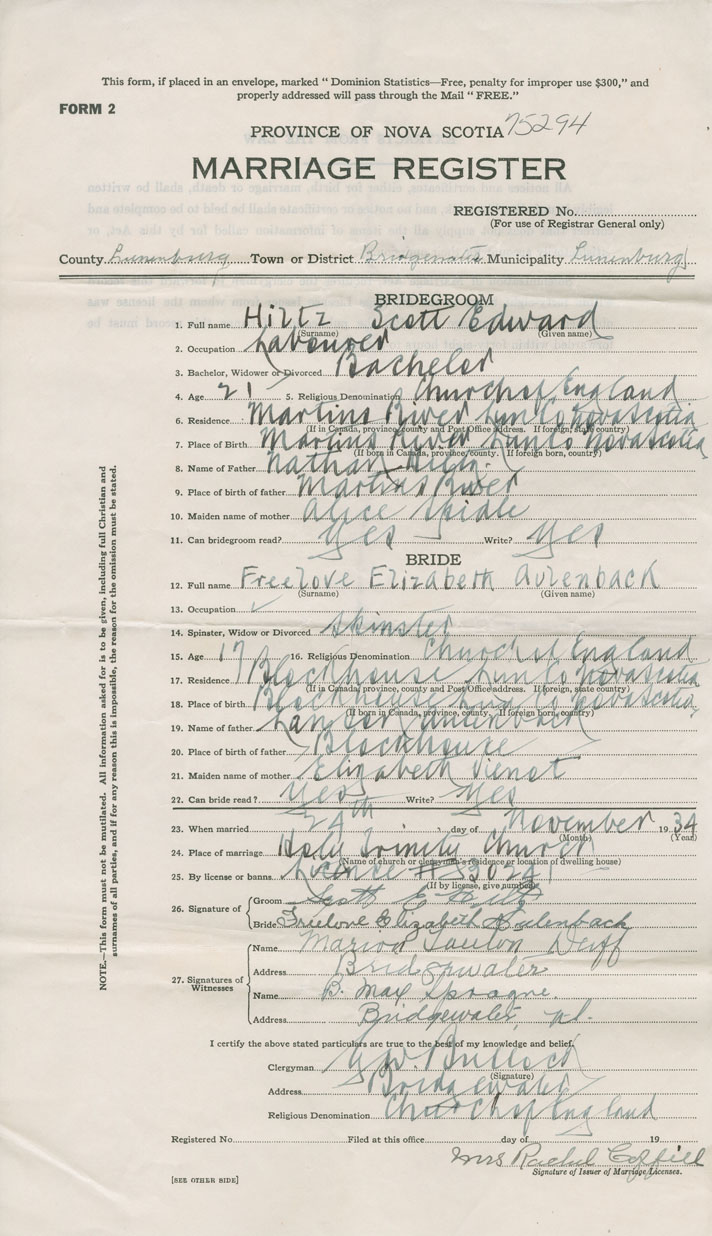 This form, if placed in an envelope, marked "Dominion Statistics—Free, penalty for improper use $300," and
properly addressed will pass through the Mail "FREE."
FORM 2
PROVINCE OF NOVA SCOTIA 75294
MARRIAGE REGISTER
REGISTERED No.
(For use of Registrar General only)
County Lunenburg Town or District Bridgewater Municipality Lunenburg
BRIDEGROOM
1. Full name Hiltz Scott Edward
(Surname) (Given name)
2. Occupation Labourer
3. Bachelor, Widower or Divorced Bachelor
4. Age 21 5. Religious Denomination Church of England
6. Residence Martins River Lun Co Nova Scotia
(If in Canada, province, county and Post Office address. If foreign, state country)
7. Place of Birth Martins River Lun Co Nova Scotia
(If born in Canada, province, county. If foreign born, country)
8. Name of Father Nathan Hiltz.
9. Place of birth of father Martins River
10. Maiden name of mother Alice Spidle
11. Can bridegroom read? Yes Write? Yes
BRIDE
12. Full name Freelove Elizabeth Aulenback
(Surname) (Given name)
13. Occupation
14. Spinster, Widow or Divorced Skinster
15. Age 17 16. Religious Denomination Church of England
17. Residence Blockhouse Lun Co Nova Scotia
(If in Canada, province, county and Post Office address. If foreign, state country)
18. Place of birth Blockhouse Lun Co Nova Scotia
(If born in Canada, province, county. If foreign born, country)
19. Name of father Aulenback
20. Place of birth of father Blockhouse
21. Maiden name of mother Elizabeth Vienot
22. Can bride read? Yes Write? Yes
23. When married 24th day of November 1934
(Month) (Year)
24. Place of marriage Holy Trinity Church
(Name of church or clergyman's residence or location of dwelling house)
25. By license or banns License # 30241
(If by license, give number)
26. Signature of
Groom Scott E Hiltz
Bride Freelove Elizabeth Aulenback
27. Signatures of Witnesses
Name Marion Duff
Address Bridgewater
Name B. Max Sprague.
Address Bridgewater, N.S.
I certify the above stated particulars are true to the best of my knowledge and belief.
Clergyman Bullock
(Signature)
Address Bridgewater
Religious Denomination Church of England
Registered No. Filed at this office day of 19
Mrs Rachel
Signature of Issuer of Marriage Licenses.
[SEE OTHER SIDE]
NOTE.—This form must not be mutilated. All information asked for is to be given, including full Christian and
surnames of all parties, and if for any reason this is impossible, the reason for the omission must be stated.